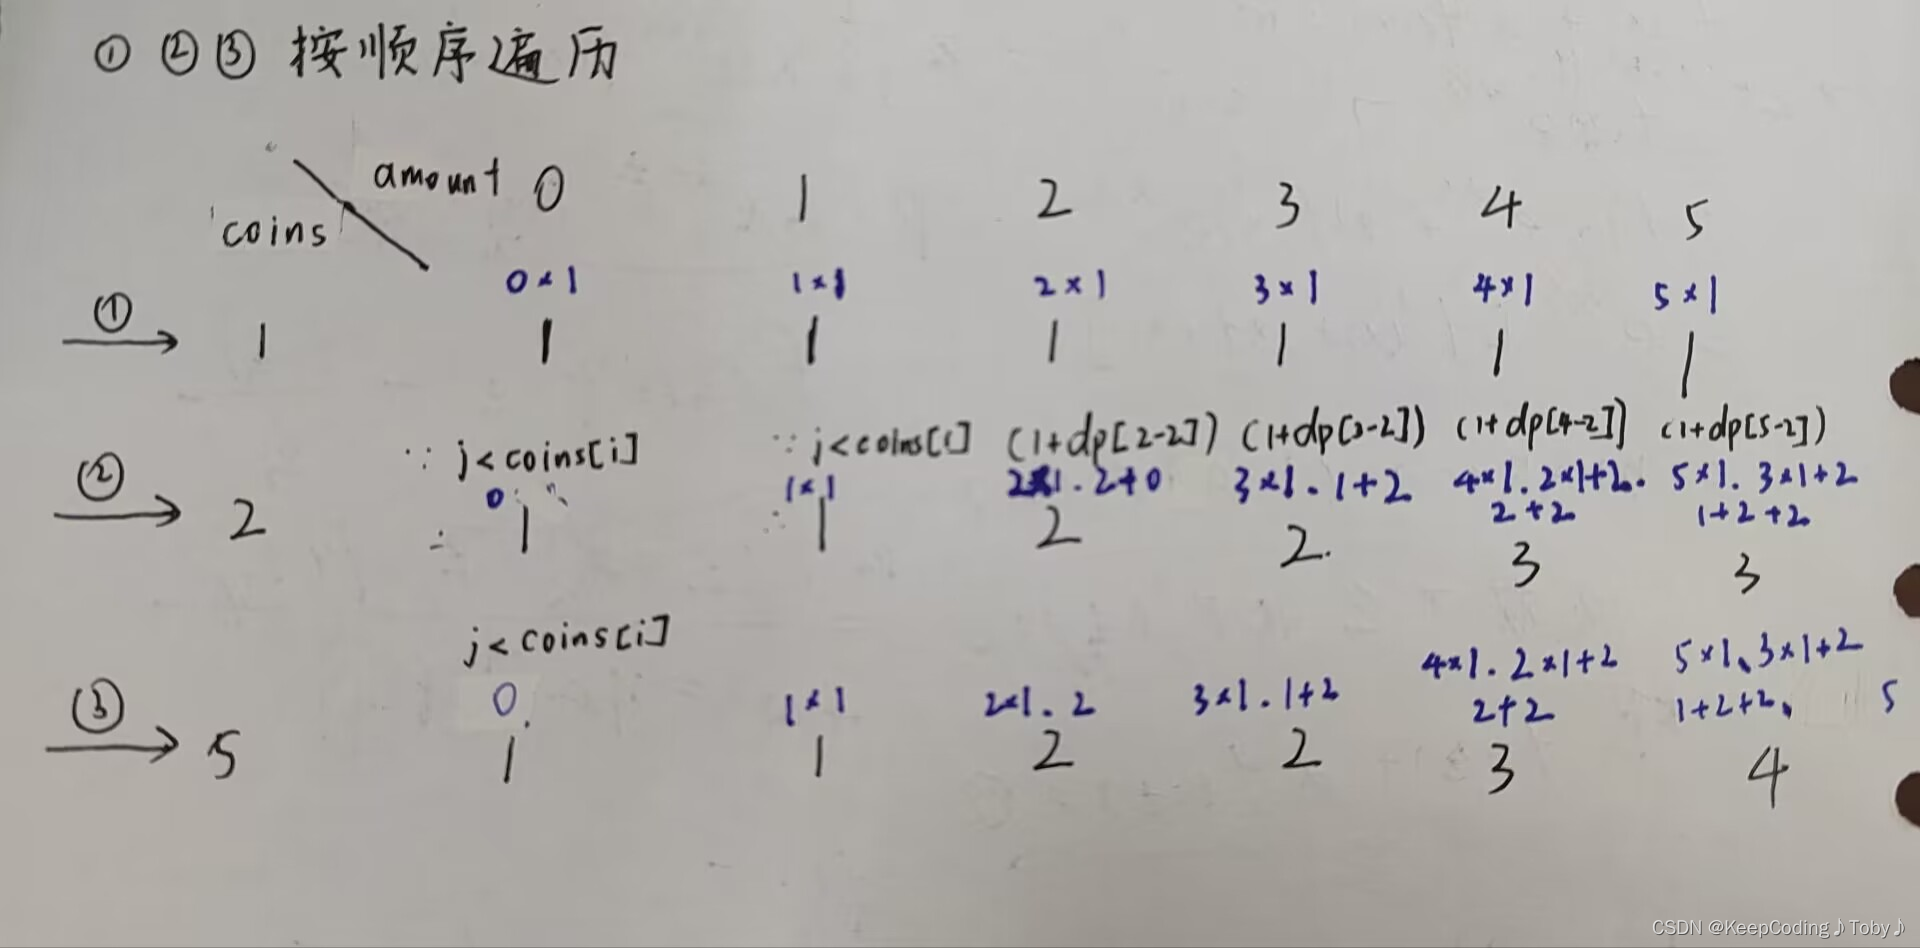 ① ② ③ 按顺序遍历
amount 0 1 2 3 4 5
coins
0×1 1×1 2×1 3×1 4×1 5×1
① 1 1 1 1 1 1 1
∵ j<coins[i] ∵ j<coins[i] (1+dp[2-2]) (1+dp[3-2]) (1+dp[4-2]) (1+dp[5-2])
0 1×1 2×1. 2+0 3×1. 1+2 4×1. 2×1+2. 5×1. 3×1+2
2+2 1+2+2
② 2 ∴ 1 ∴ 1 2 2. 3 3
j<coins[i]
4×1. 2×1+2 5×1、3×1+2
0. 1×1 2×1. 2 3×1. 1+2 2+2 1+2+2、 5
③ 5 1 1 2 2 3 4
CSDN @KeepCoding♪Toby♪